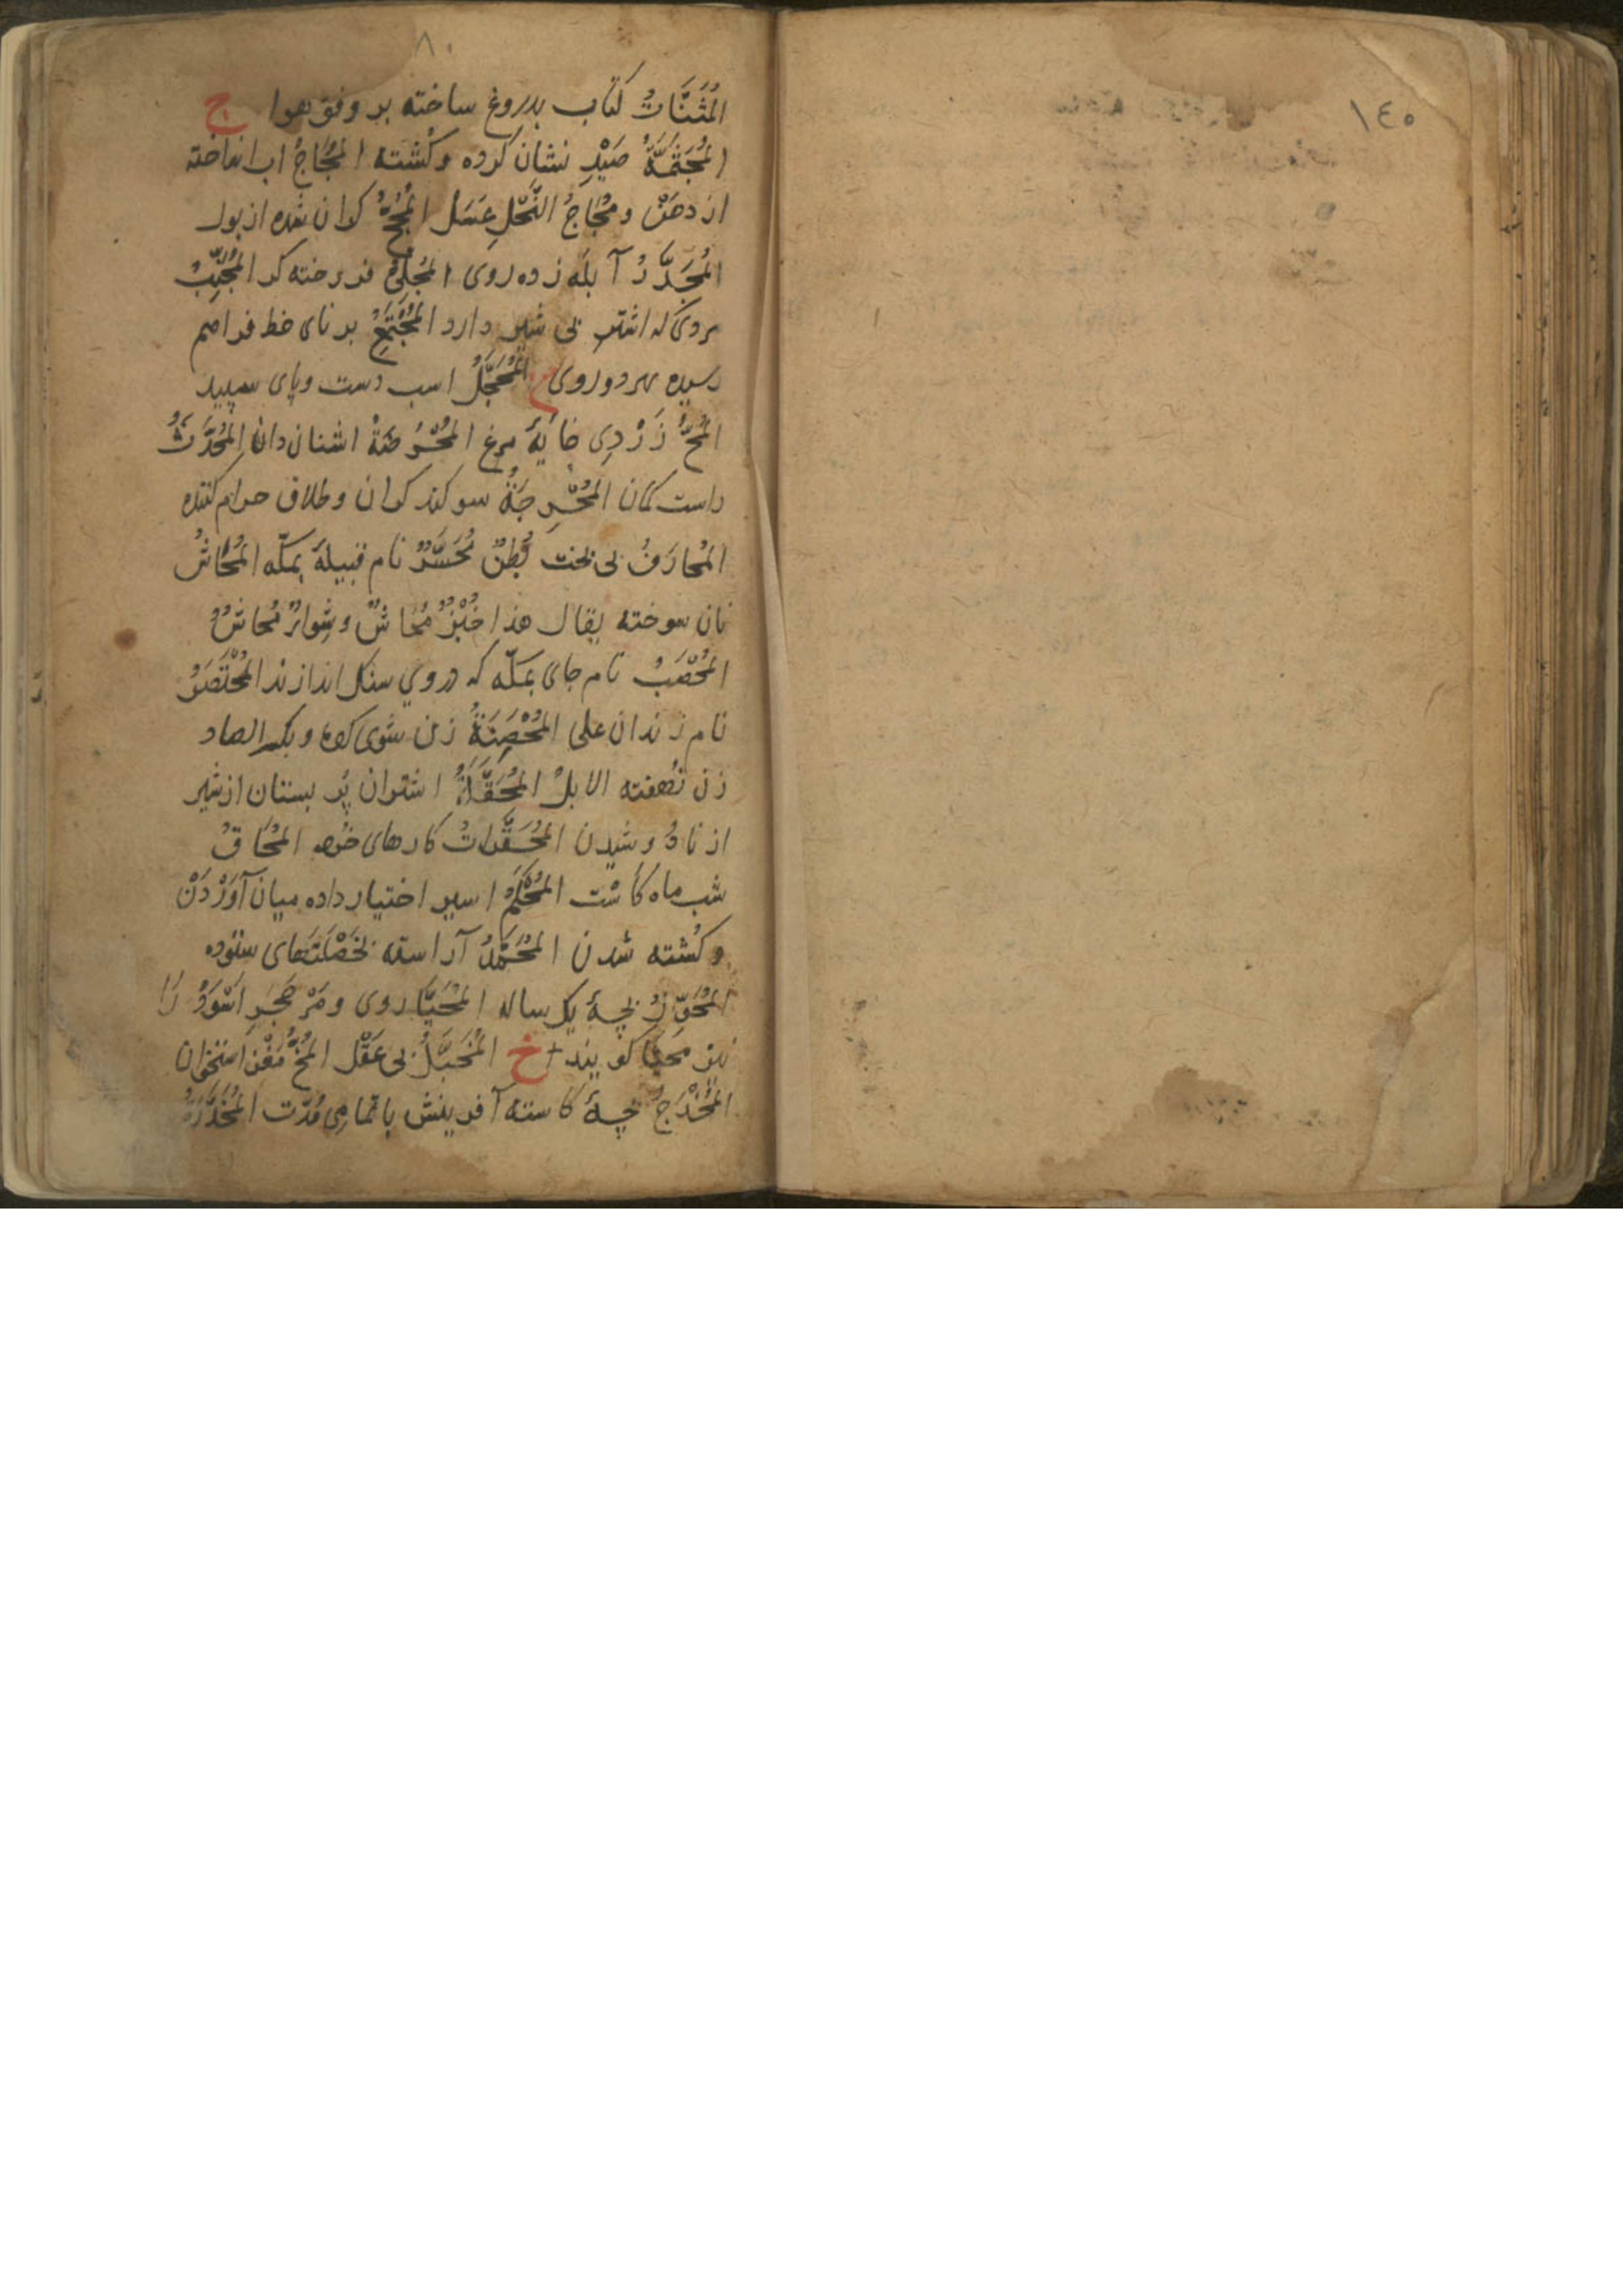 ٨٠
المُثَنَّاتُ كتاب بدروغ ساخته بر وفق هوا ج
المُجَثَّمَةُ صَيْدِ نشان كرده و كُشته المُجَاجُ اب انداخته
از دهَنْ و مُجَاجُ النَّحْلِ عَسَل المُجِحُّ كران شده از بول
المُجَدَّرُ آبلَه زده روى
مردى كه اشتر بى شير دارد المُجْتَمِعُ برناى خط فراهم
رسيده بهر دو روى ح المُحَجَّلُ اسب دست وپاى سپيد
المُحُّ زَرْدىِ خايَهٔ مرغ المُحْرُضَةُ اشنان دان المُحَدَّثُ
راست كمان المُحَرِّجَةُ سوكند كران و طلاق حرام كننده
المُحارَفُ بى بخت بَطن مُحَسَّر نام قبيلهٔ بمكّه المُحَاشُ
نان سوخته يقال هذا خُبْزٌ مُحَاشٌ و شِواءٌ مُحاشٌ
المُحَصَّبُ نام جاى بمكّه كه در وي سنك اندازند
نام زندان على المُحْصَنَةُ زن شوى كرده وبكسر الصاد
زن نهفته الابلُ المُحَفَّلَةُ اشتران پُر پستان از شير
از نادوشيدن المُحَقَّراتُ كارهاى خُرد المُحَاقُ
شب ماه كاست المُحَكَّمُ اسير اختيار داده ميان آوَرْدَنْ
و كُشته شدن المُحَمَّدُ آراسته بخَصْلَتهاى ستوده
بچهٔ يك ساله المُحَيَّا روى و مَرْ حَجَرِ اَسْوَدْ رَا
نيز مُحَيَّا كويند خ المُخَبَّلُ بى عَقْل المُخُّ مَغْزِ استخوان
المُخْدَجُ بچهٔ كاسته آفرينش باتمامىِ مُدَّت المُخَدَّرَةُ
١٤٥